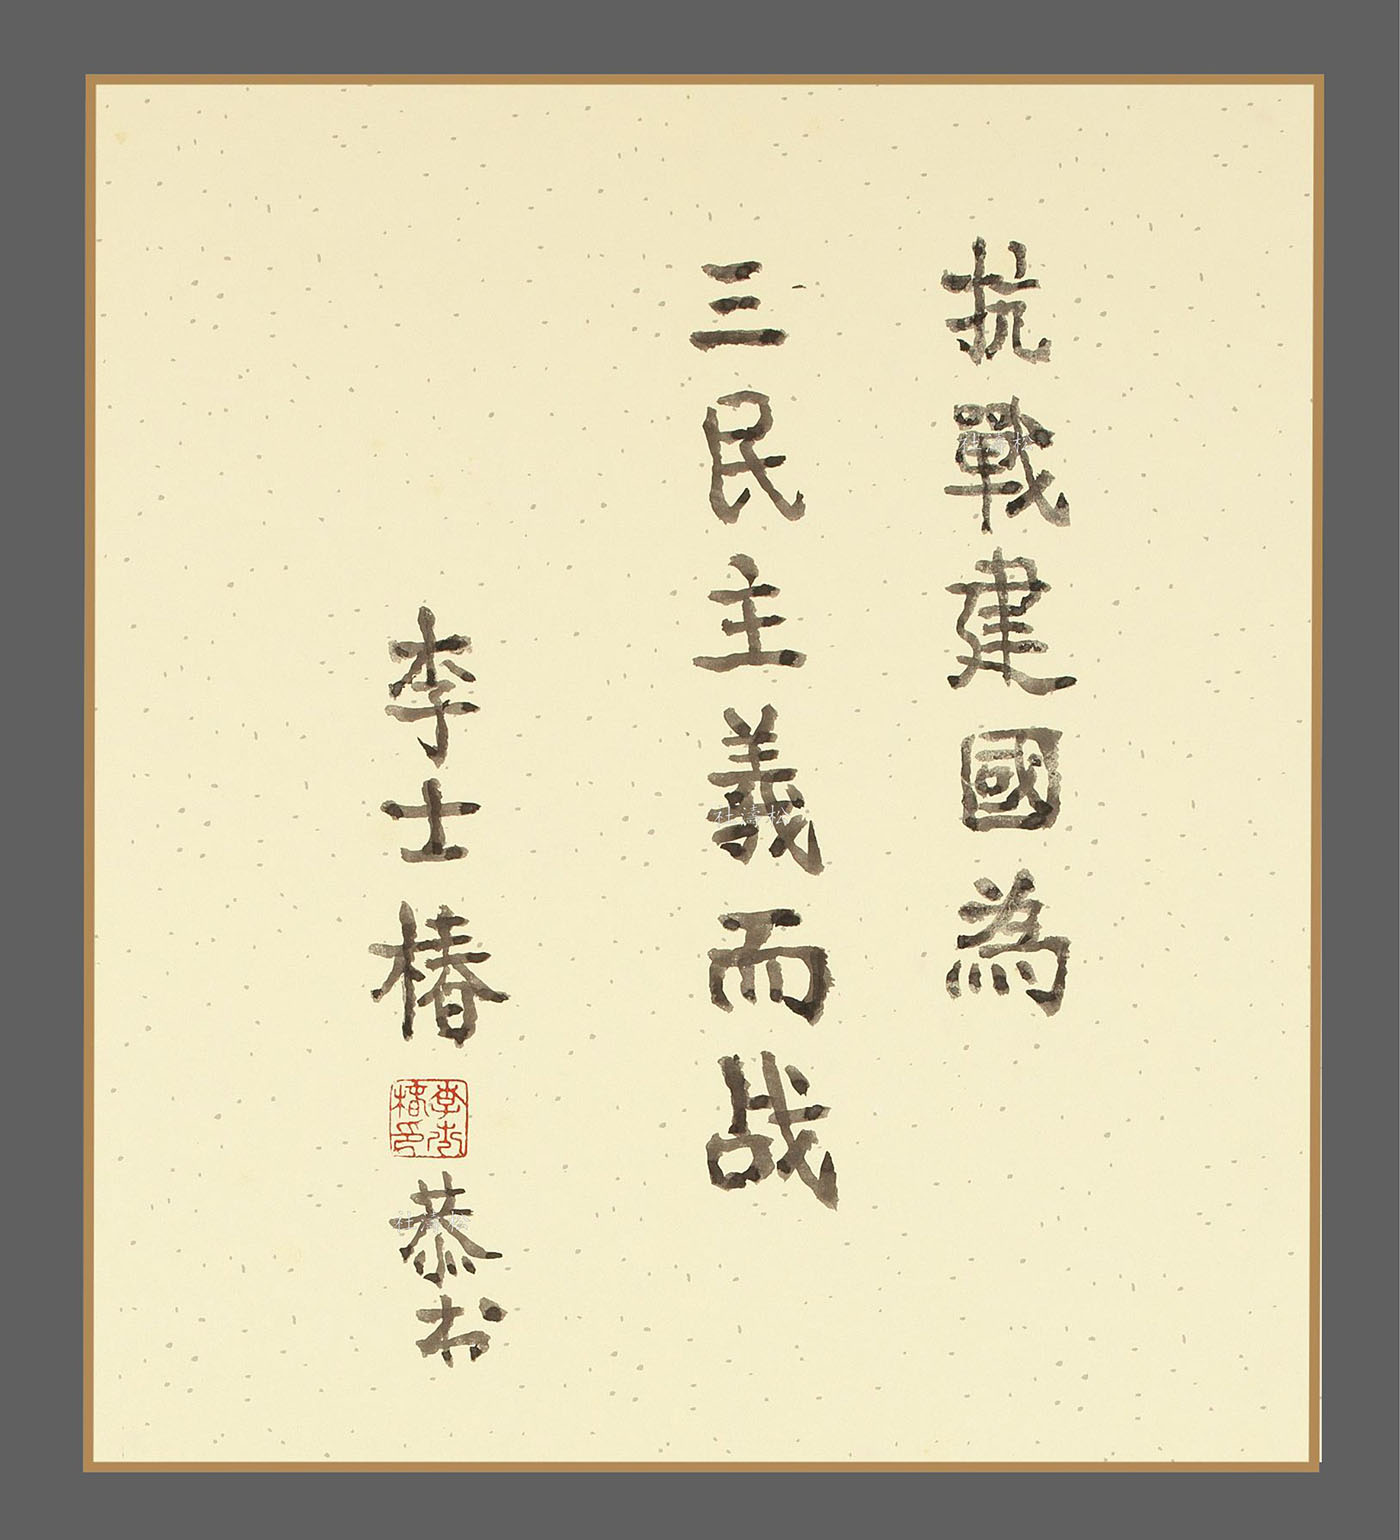 抗戰建國為
三民主義而战
李士椿
恭书